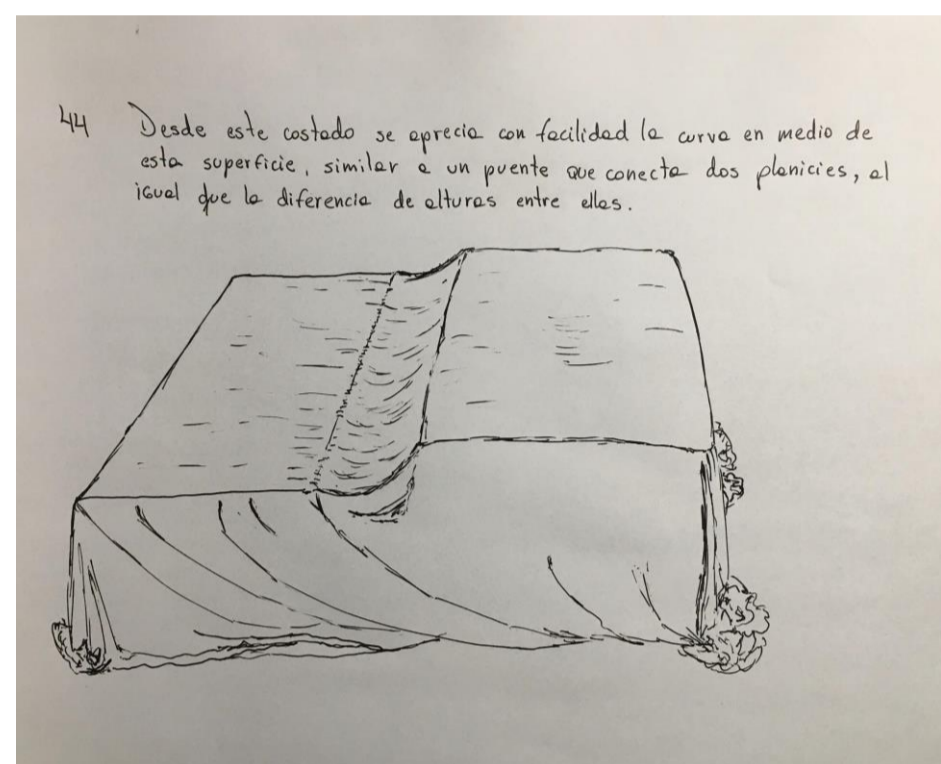 44 Desde este costado se aprecia con facilidad la curva en medio de
esta superficie, similar a un puente que conecta dos planicies, al
igual que la diferencia de alturas entre ellas.